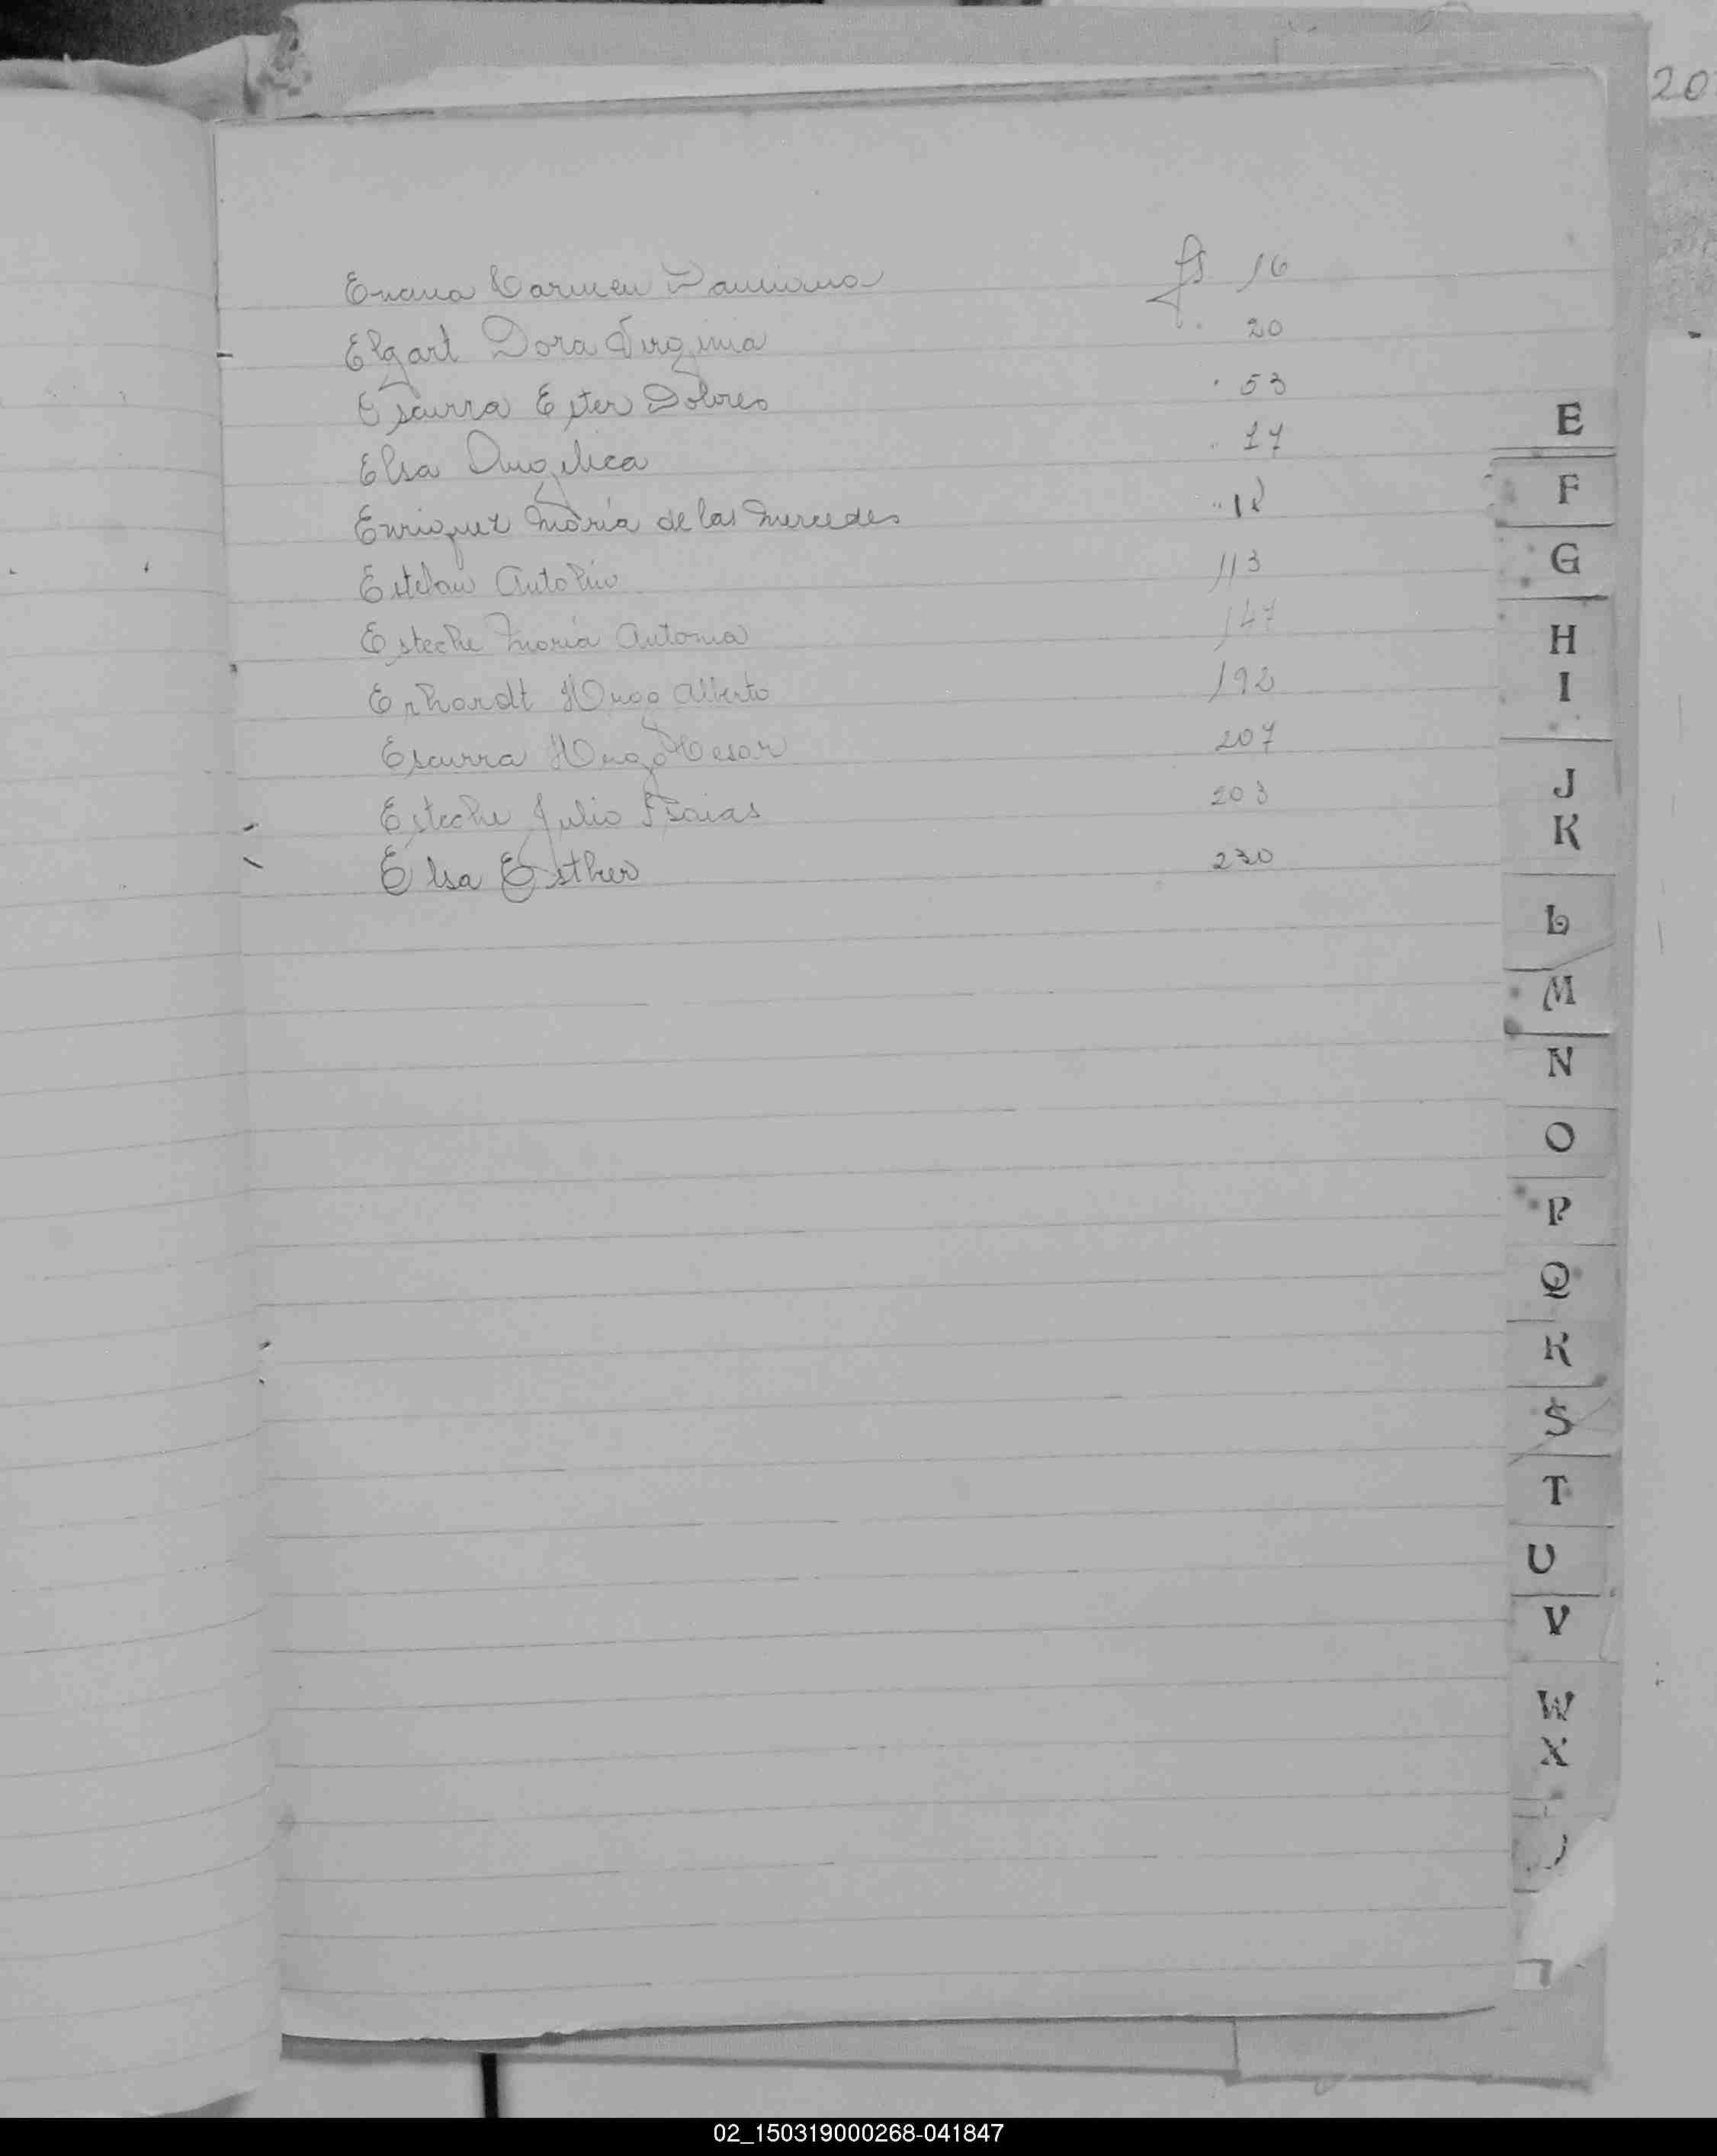 Carmen Damiana fs 16
Elgart Dora Virginia 20
Escurra Ester Dolores 53
Elsa Angelica 17
Enriquez Maria de las Mercedes 18
Esteban Antolin 113
Esteche Maria Antonia 147
Erhardt Hugo Alberto 192
Escurra Hugo Cesar 207
Esteche Julio Isaias 203
Elsa Esther 230
20
E
F
G
H
I
J
K
L
M
N
O
P
Q
R
S
T
U
V
W
X
02_150319000268-041847